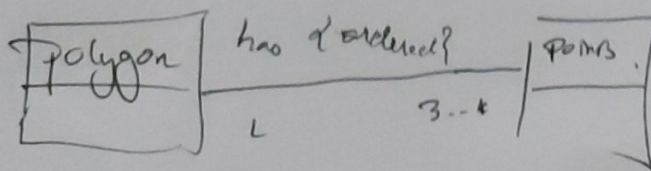 polygon has {ordered} points.
1 3..*